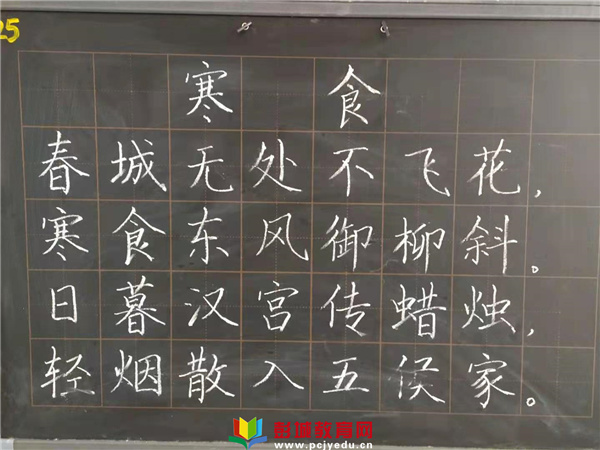 25
寒食
春城无处不飞花,
寒食东风御柳斜。
日暮汉宫传蜡烛,
轻烟散入五侯家。
彭城教育网
www.pcjyedu.cn